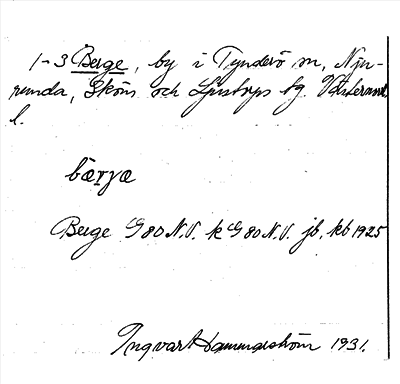 1-3 Berge, by i Tynderö sn, Njurunda, Sköns och Ljustorps tg. Västernorrl.
bæṛγæ
Berge G80N.V. k G80N.V. jb, kb 1925
Ingvar Hammarström 1931.